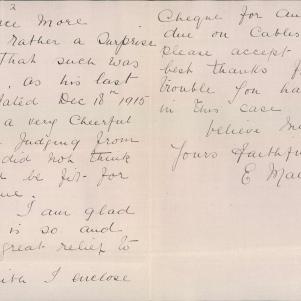 2
ce More
rather a Surprise
that such was
, as his last
dated Dec 18th 1915
a very Cheerful
Judging from
did not think
d be fit for
I am glad
is so and
great relief to
ith I enclose
Cheque for
due on Cables
please accept
best thanks f
trouble you ha
in this case
believe me
Yours Faithfu
E Ma